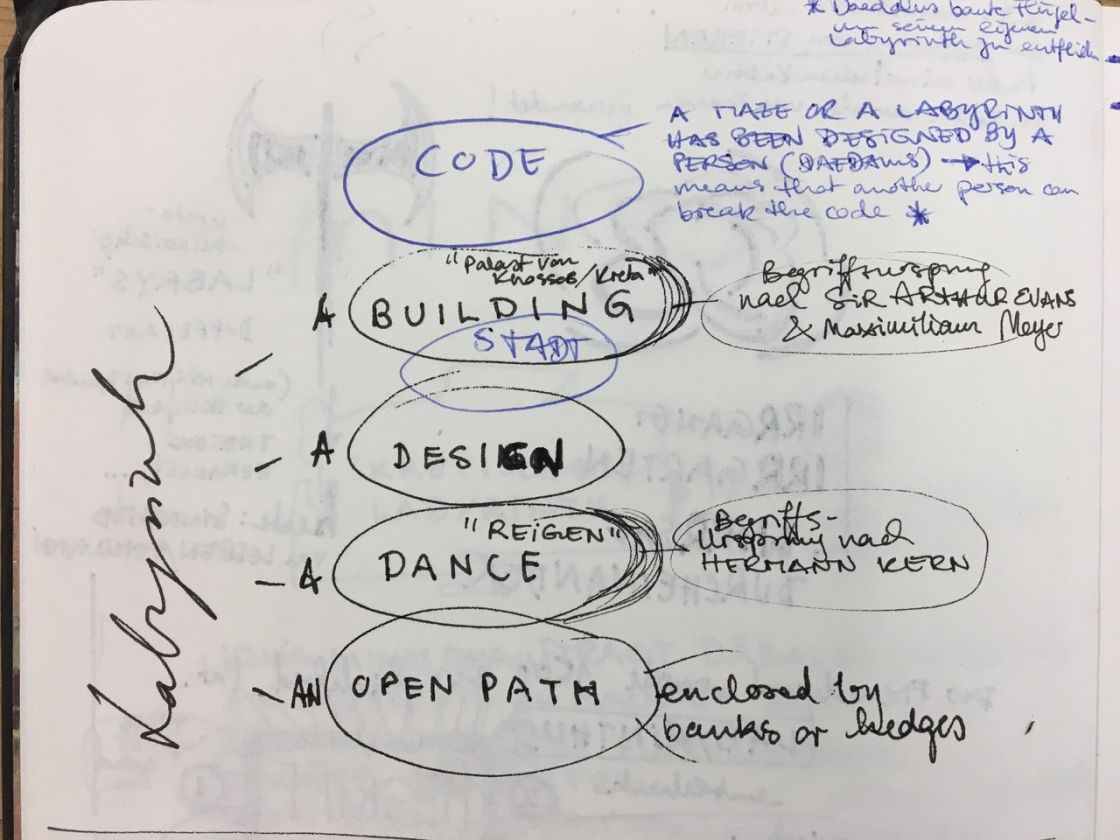 * Daedalus baute Flügel-
um seinem eigenen
Labyrinth zu entfliehen
CODE
A MAZE OR A LABYRINTH
HAS BEEN DESIGNED BY A
PERSON (DAEDALUS) → this
means that another person can
break the code *
Labyrinth
"Palast von
Knossos/Kreta"
A BUILDING
Begriffsursprung
nach Sir ARTHUR EVANS
& Maximilian Meyer
STADT
- A DESIGN
"REIGEN"
- A DANCE
Begriffs-
Ursprung nach
HERMANN KERN
- AN OPEN PATH
enclosed by
banks or hedges